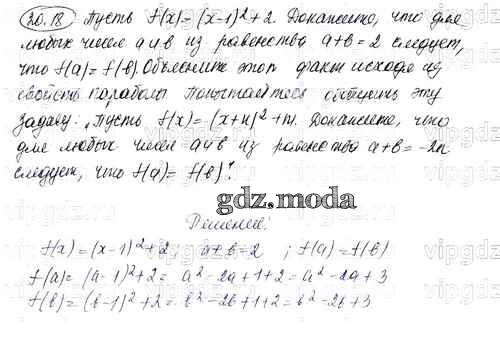 20.18. Пусть f(x) = (x-1)² + 2. Докажите, что для
любых чисел a и b из равенства a+b=2 следует,
что f(a) = f(b). Объясните этот факт исходя из
свойств параболы Попытайтесь обобщить эту
задачу: "Пусть f(x) = (x+n)² + m. Докажите, что
для любых чисел a и b из равенства a+b = -2n
следует, что f(a) = f(b)"
gdz.moda
Решение:
f(x) = (x-1)² + 2, a+b=2 ; f(a) = f(b)
f(a) = (a-1)² + 2 = a² - 2a + 1 + 2 = a² - 2a + 3
f(b) = (b-1)² + 2 = b² - 2b + 1 + 2 = b² - 2b + 3